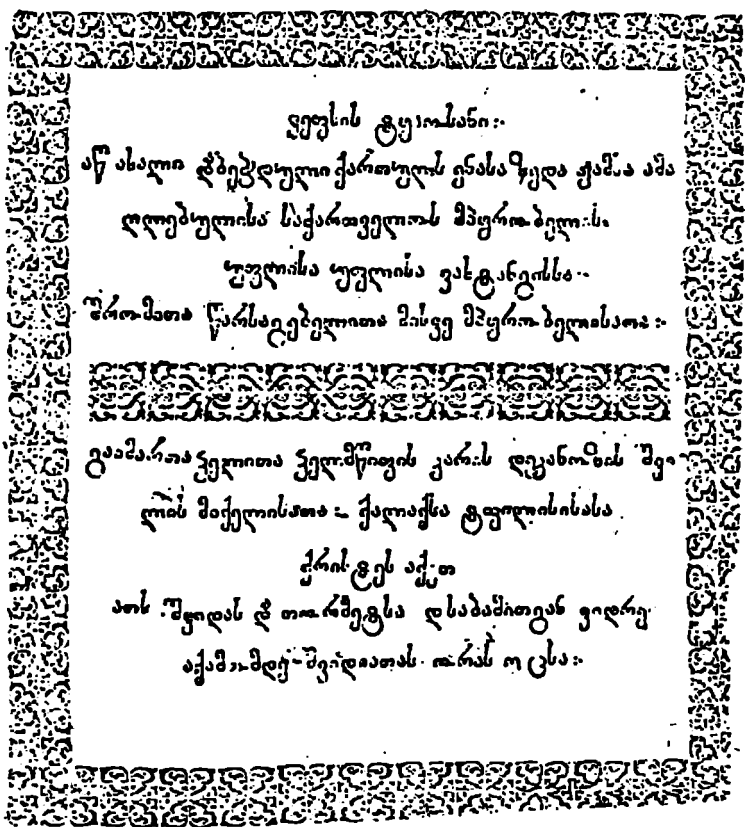 ვეფხის ტყაოსანი:·
აწ ახალი დაბეჭდული ქართულს ენასა ზედა ჟამსა ამა
ღლებულისა საქართველოს მპყრობელის.
უფლისა უფლისა ვახტანგისსა·
შრომათა წარსაგებელითა მისვე მპყრობელისათა:·
გაიმართა ჴელითა ჴელმწიფის კარის დეკანოზის შვი
ლის მიქელისათა: ქალაქსა ტფილისისასა
ქრისტეს აქეთ
ათს შვიდას და თორმეტსა დსაბამითგან ვიდრე
აქამომდე შვიდიათას ორას ოცსა:·